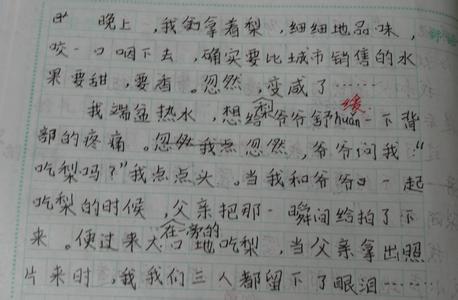 晚上,我们拿着梨,细细地品味,
咬一口咽下去,确实要比城市销售的水
果要甜,要香。忽然,变咸了……
我端盆热水,想给爷爷舒huǎn缓一下背
部的疼痛。忽然,爷爷问我:“
吃梨吗?”我点点头。当我和爷爷一起
吃梨的时候,父亲把那一瞬间给拍了下
来。便过来在一旁大口地吃梨,当父亲拿出照
片来时,我们三人都留下了眼泪……